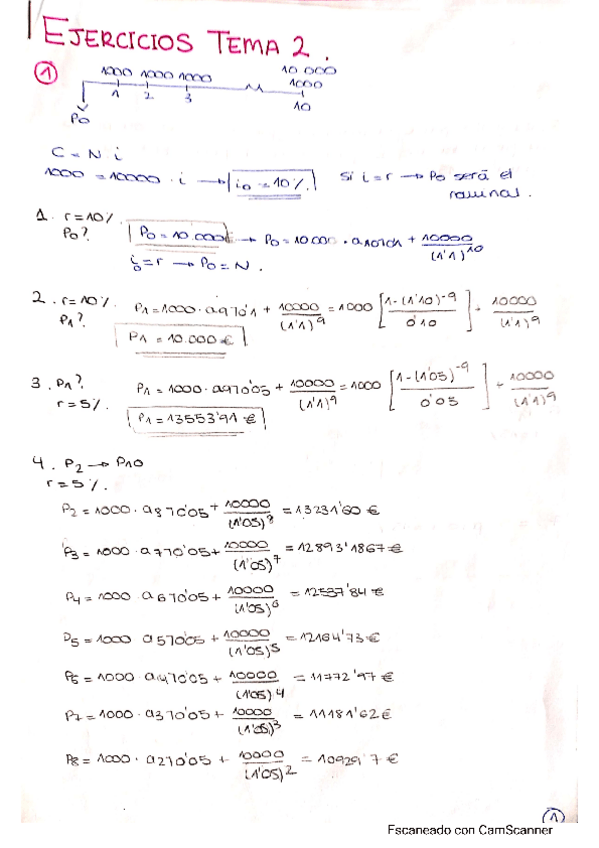 EJERCICIOS TEMA 2.
① 1000 1000 1000 10 000
1000
1 2 3 10
P0
C = N i
1000 = 10000 · i → i0 = 10%. Si i = r → P0 será el
1. r = 10%.
P0? P0 = 10.000 → P0 = 10.000 · a10 0'1 + 10000/(1'1)^10
i0 = r → P0 = N.
2. r = 10%. P1 = 1000 · a9 0'1 + 10000/(1'1)^9 = 1000 [1-(1'10)^-9 / 0'10] + 10000/(1'1)^9
P1?
P1 = 10.000 €
3. P1? P1 = 1000 · a9 0'05 + 10000/(1'1)^9 = 1000 [1-(1'05)^-9 / 0'05] + 10000/(1'1)^9
r = 5%. P1 = 13553'91 €
4. P2 → P10
r = 5%.
P2 = 1000 · a8 0'05 + 10000/(1'05)^8 = 13231'60 €
P3 = 1000 · a7 0'05 + 10000/(1'05)^7 = 12893'1867 €
P4 = 1000 a6 0'05 + 10000/(1'05)^6 = 12537'84 €
P5 = 1000 a5 0'05 + 10000/(1'05)^5 = 12164'73 €
a4 0'05 + 10000/(1'05)^4 = 11772'97 €
P7 = 1000 · a3 0'05 + 10000/(1'05)^3 = 11181'62 €
P8 = 1000 · a2 0'05 + 10000/(1'05)^2 = 10929'7 €
①
Escaneado con CamScanner